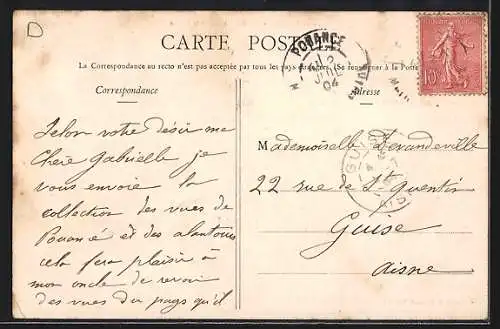 D
CARTE POSTALE
La Correspondance au recto n'est pas acceptée par tous les pays étrangers. (Se renseigner à la Poste
Correspondance
Adresse
POUANCÉ
2
JUIL
04
10
Selon votre désir ma
Chère Gabrielle je
vous envoie la
collection des vues de
Pouancé et des alentours
cela fera plaisir à
mon oncle de revoir
des vues du pays qu'il
Mademoiselle Devandeville
22 rue de St Quentin
Guise
Aisne
GUISE